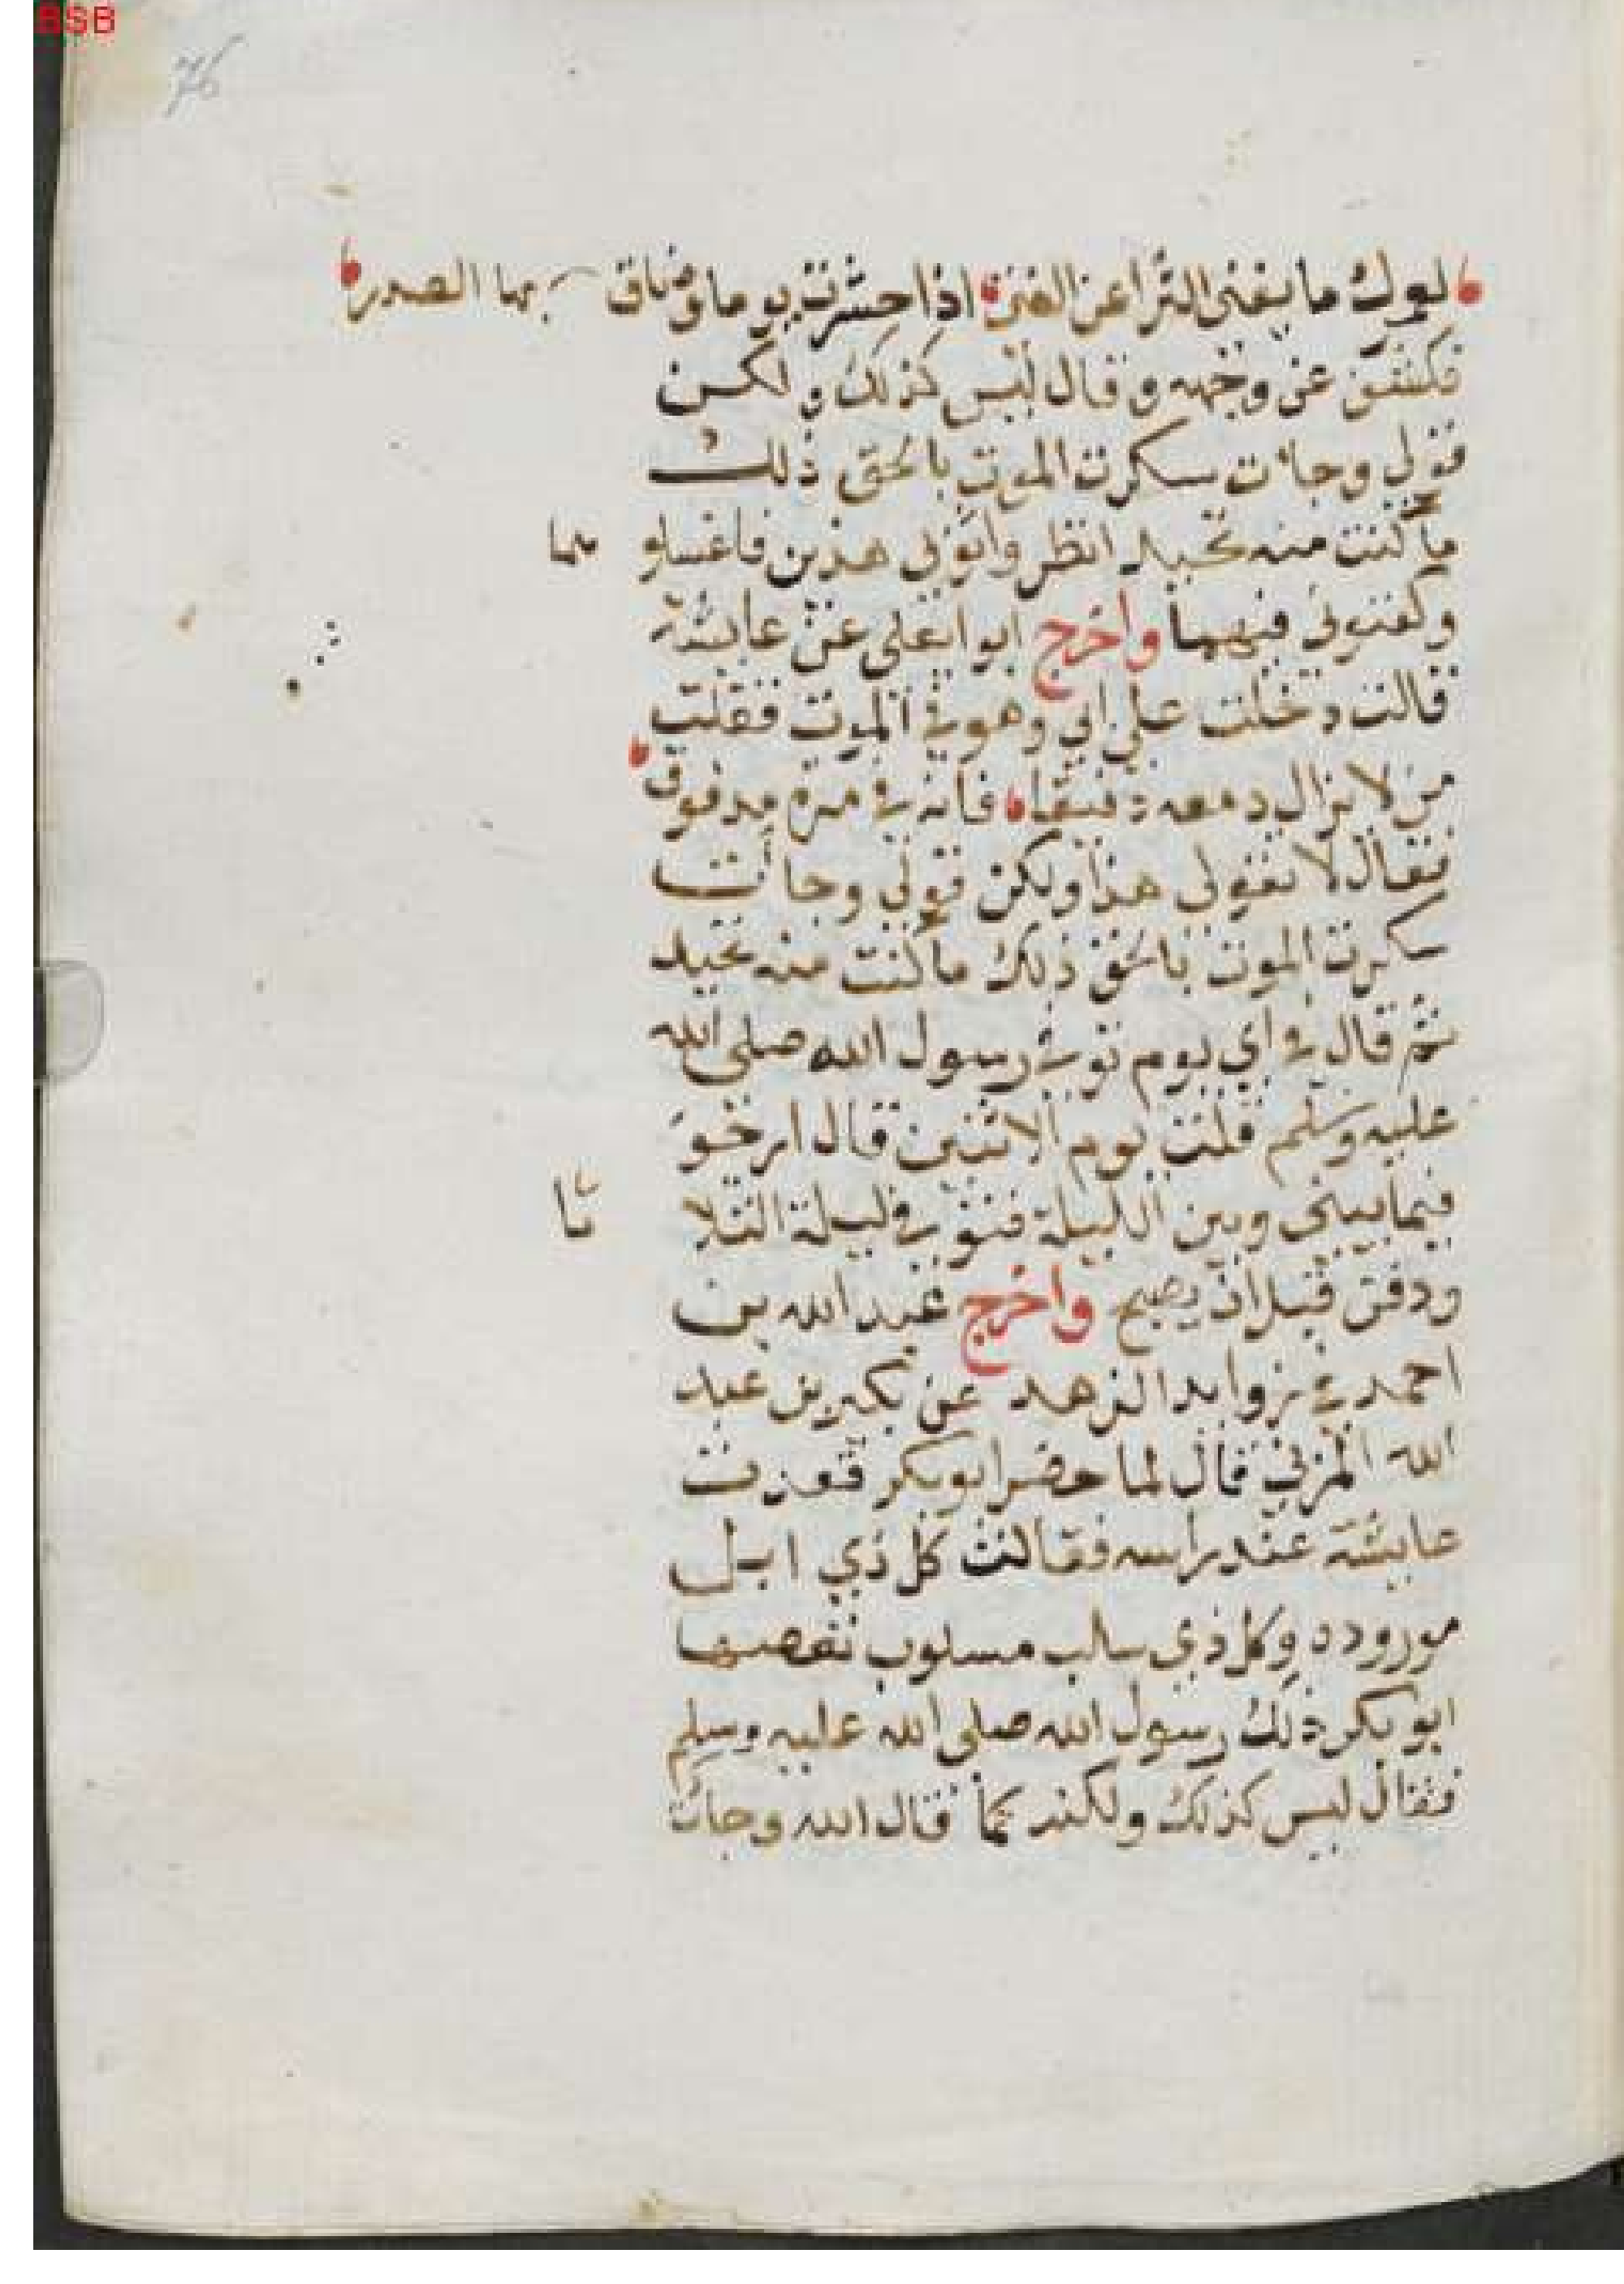 BSB
76
لعمرك ما يغنى الثرا عن الفتى اذا حشرجت يوما وضاق بها الصدر
فكشف عن وجهه وقال ليس كذلك ولكن
قولي وجات سكرت الموت بالحق ذلك
ما كنت منه تحيد انظر واثوبي هذين فاغسلو هما
وكفنوني فيهما واخرج ابوا يعلى عن عايشة
قالت دخلت على ابي وهو في الموت فقلت
من لا يزال دمعه دفيقا فانه في مرة مدفوق
فقال لا تقولي هذا ولكن قولي وجات
سكرت الموت بالحق ذلك ما كنت منه تحيد
ثم قال في اي يوم توفي رسول الله صلى الله
عليه وسلم قلت يوم الاثنين قال ارجو
فيما بيني وبين الليلة فتوفي ليلة الثلا ثا
ودفن قبل ان يصبح واخرج عبد الله بن
احمد في زوايد الزهد عن بكير بن عبد
الله المزني قال لما حضر ابو بكر قعدت
عايشة عند راسه فقالت كل ذي ابل
مورودد وكل ذي سالب مسلوب ففهمها
ابو بكر ذلك رسول الله صلى الله عليه وسلم
فقال ليس كذلك ولكنه كما قال الله وجات